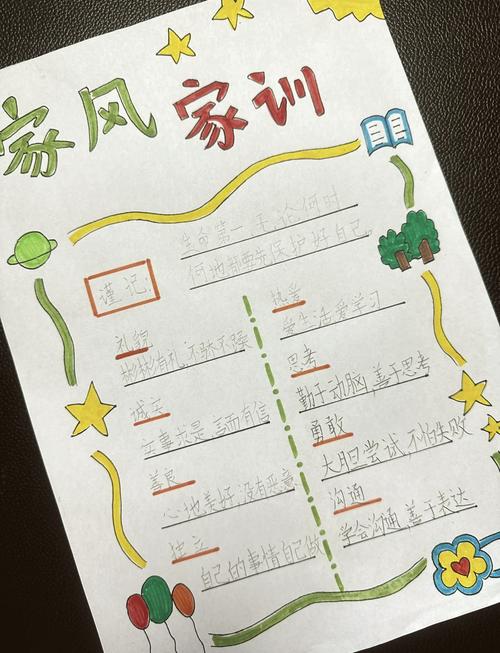 家风 家训
生命第一,无论何时
何地都要先保护好自己。
谨记:
礼貌
彬彬有礼,不骄不躁
诚实
实事求是,言而有信
善良
心地美好,没有恶意
独立
自己的事情自己做
热爱
爱生活爱学习
思考
勤于动脑,善于思考
勇敢
大胆尝试,不怕失败
沟通
学会沟通,善于表达